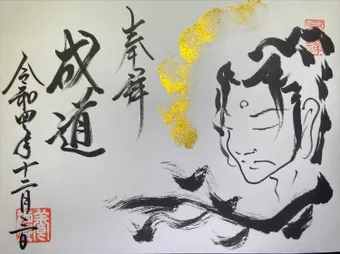 奉拝
成道
令和四年十二月二日